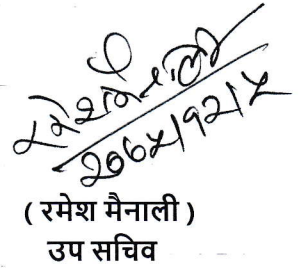 रमेश मैनाली
२०७५।१२।५
( रमेश मैनाली )
उप सचिव